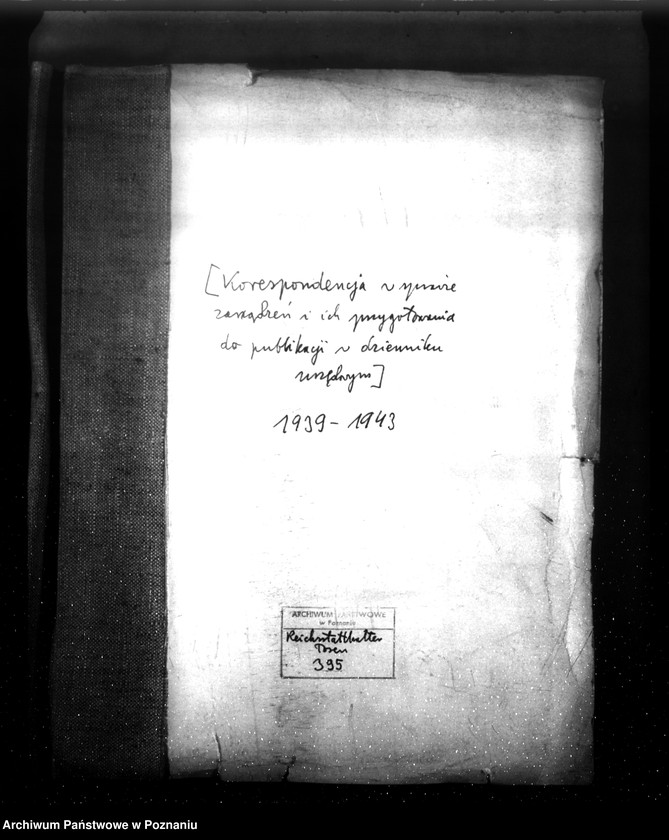 [Korespondencja w sprawie
zarządzeń i ich przygotowania
do publikacji w dzienniku
urzędowym]
1939-1943
ARCHIWUM PAŃSTWOWE
w Poznaniu
Reichsstatthalter
Posen
395
Archiwum Państwowe w Poznaniu